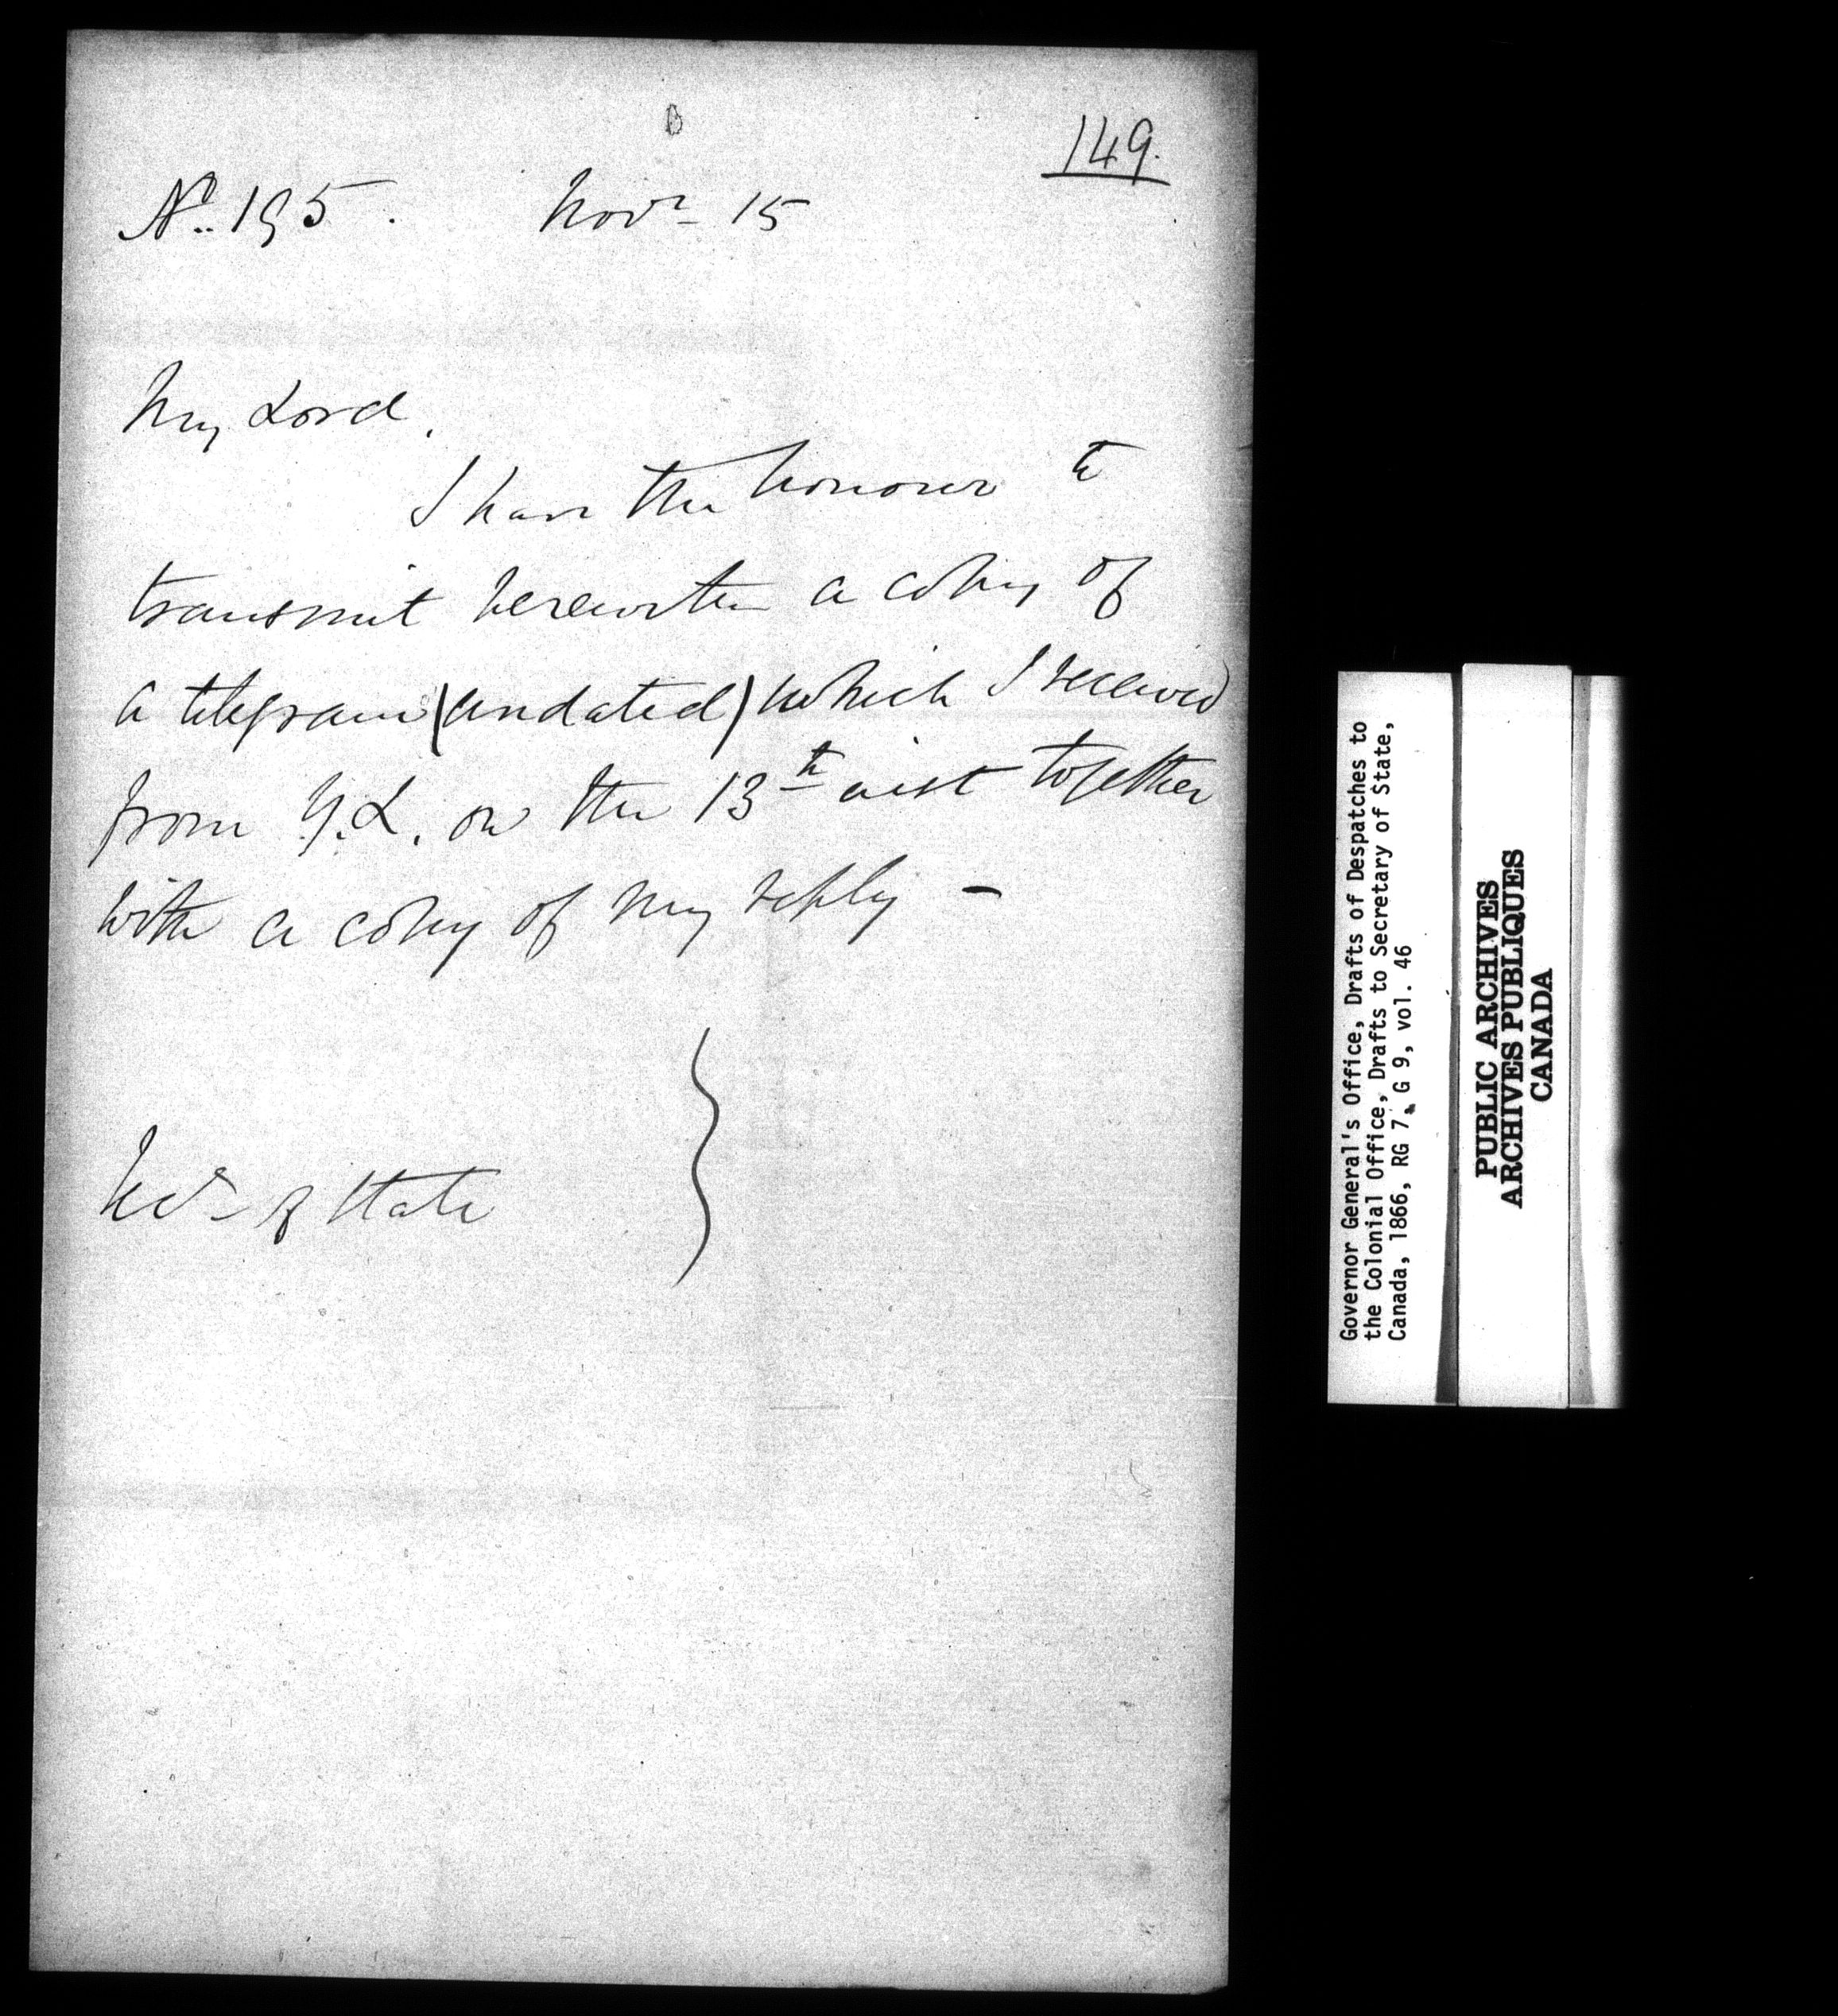 149.
No. 195. Novr 15
My Lord,
I have the honour to
transmit herewith a copy of
a telegram (undated) which I received
from Y.L. on the 13th inst together
with a copy of my reply –
Secy of State
Governor General's Office, Drafts of Despatches to
the Colonial Office, Drafts to Secretary of State,
Canada, 1866, RG 7, G 9, vol. 46
PUBLIC ARCHIVES
ARCHIVES PUBLIQUES
CANADA